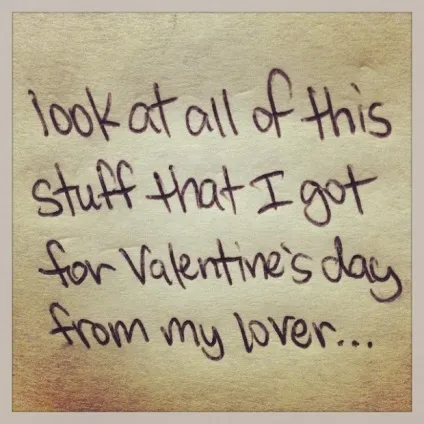 look at all of this
stuff that I got
for Valentine's day
from my lover...